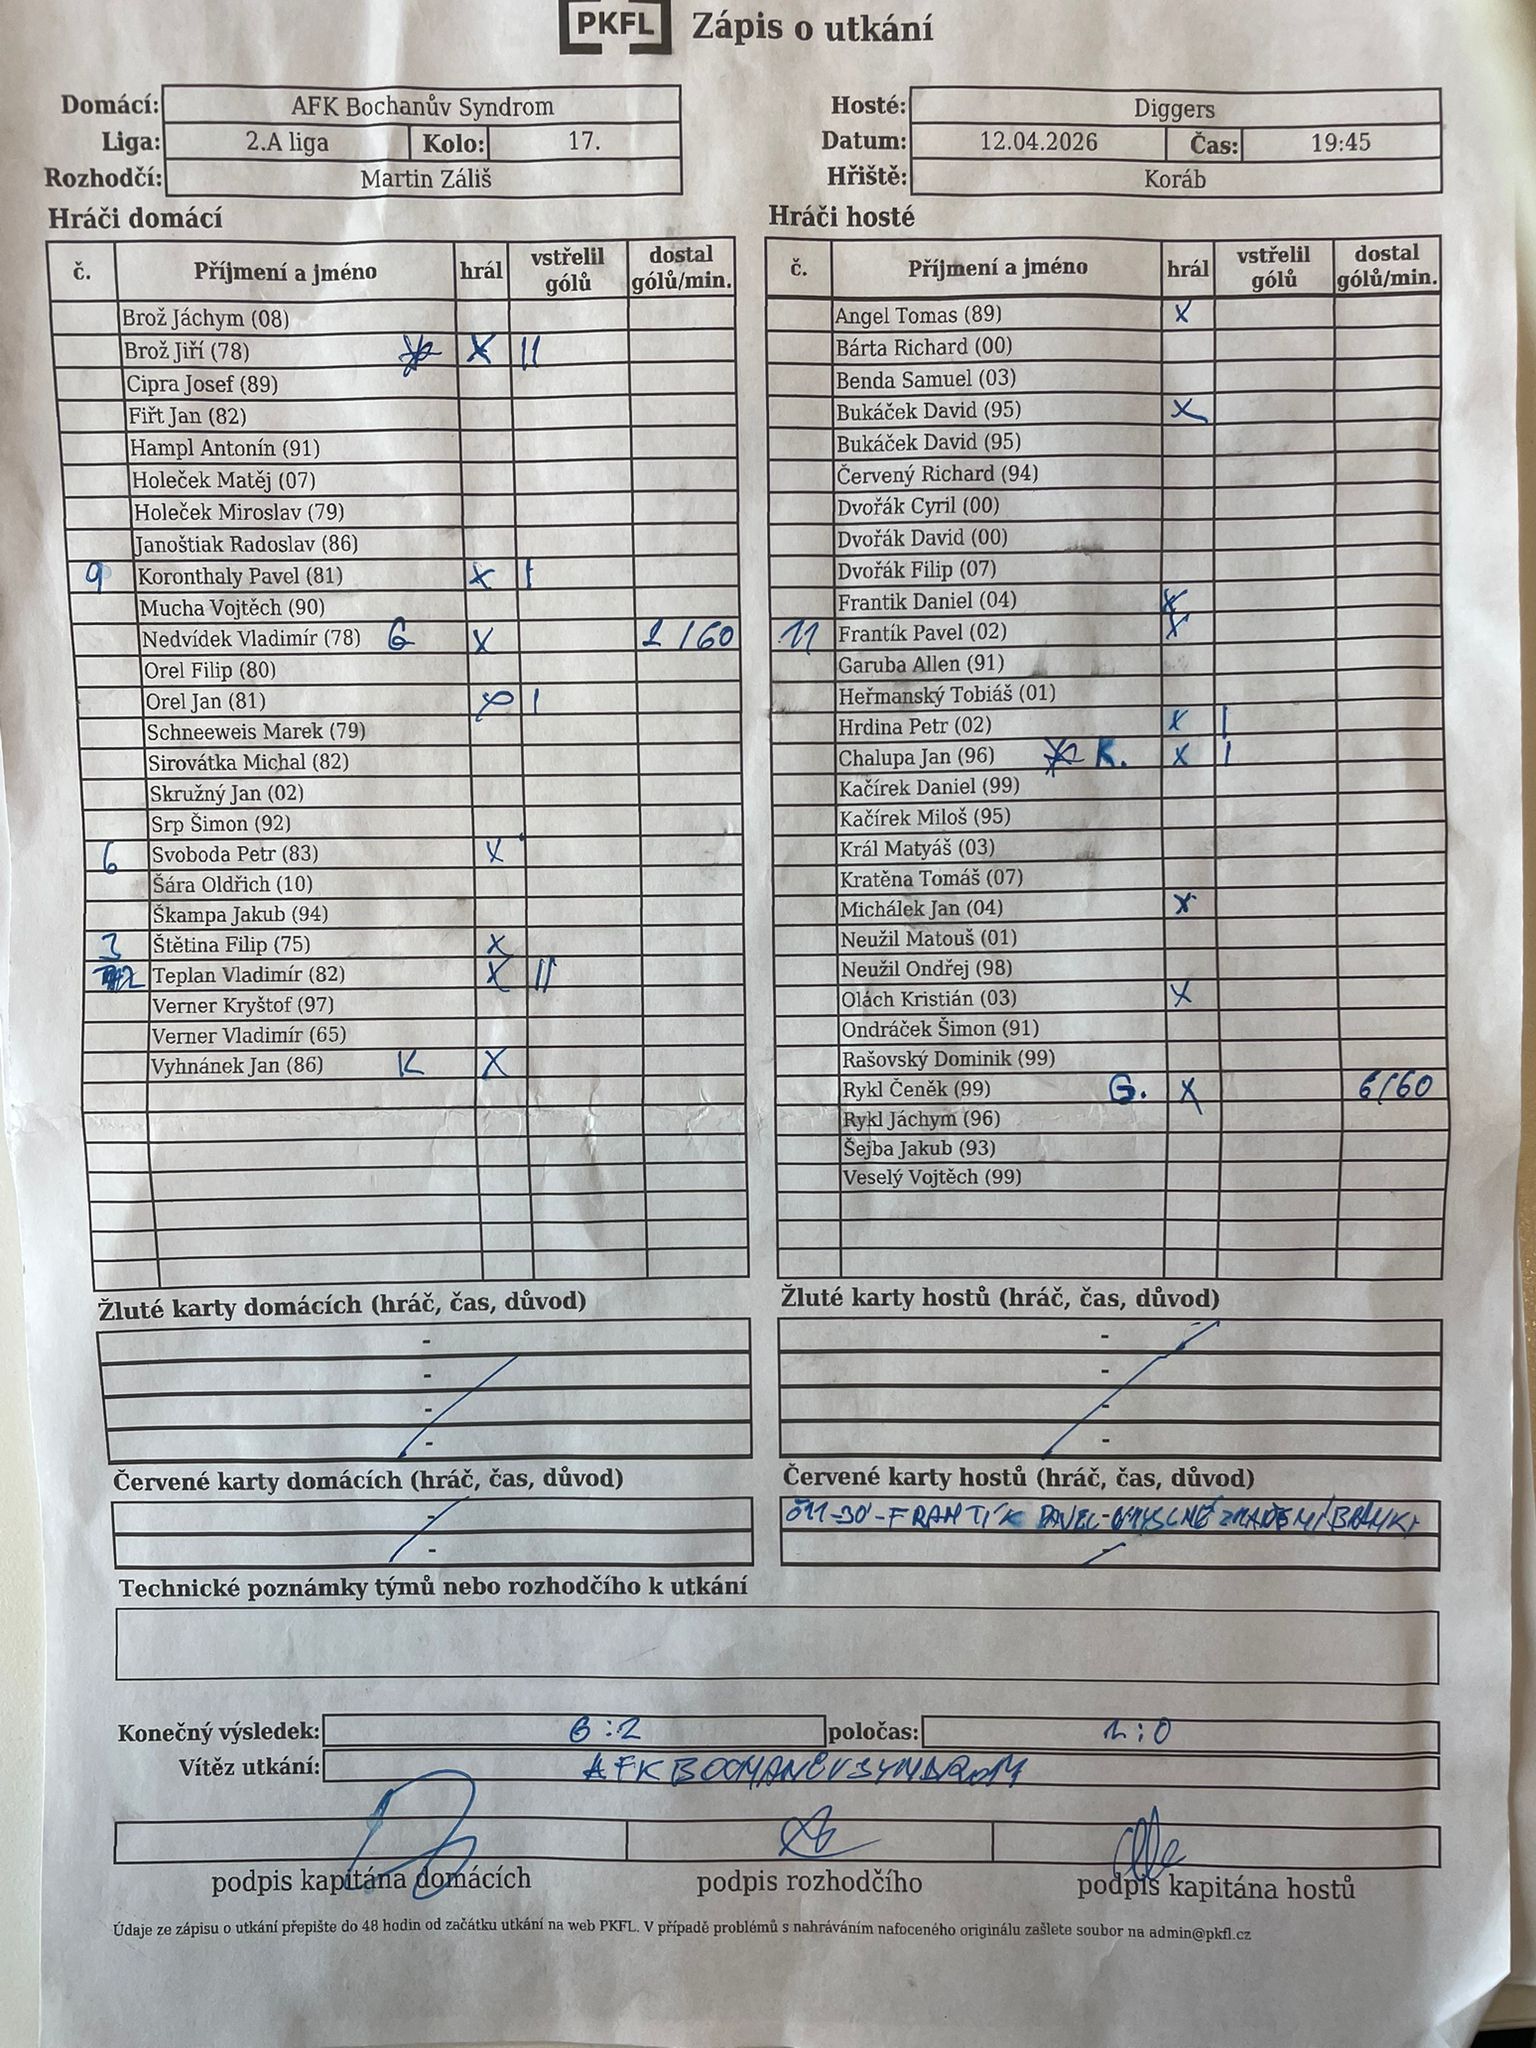 PKFL Zápis o utkání
Domácí: AFK Bochanův Syndrom
Liga: 2.A liga Kolo: 17.
Rozhodčí: Martin Záliš
Hosté: Diggers
Datum: 12.04.2026 Čas: 19:45
Hřiště: Koráb
Hráči domácí
č. Příjmení a jméno hrál vstřelil gólů dostal gólů/min.
Brož Jáchym (08)
Brož Jiří (78) X II
Cipra Josef (89)
Fiřt Jan (82)
Hampl Antonín (91)
Holeček Matěj (07)
Holeček Miroslav (79)
Janoštiak Radoslav (86)
9 Koronthaly Pavel (81) X I
Mucha Vojtěch (90)
Nedvídek Vladimír (78) G X 2/60
Orel Filip (80)
Orel Jan (81) X I
Schneeweis Marek (79)
Sirovátka Michal (82)
Skružný Jan (02)
Srp Šimon (92)
6 Svoboda Petr (83) X
Šára Oldřich (10)
Škampa Jakub (94)
3 Štětina Filip (75) X
Teplan Vladimír (82) X II
Verner Kryštof (97)
Verner Vladimír (65)
Vyhnánek Jan (86) K X
Hráči hosté
č. Příjmení a jméno hrál vstřelil gólů dostal gólů/min.
Angel Tomas (89) X
Bárta Richard (00)
Benda Samuel (03)
Bukáček David (95) X
Bukáček David (95)
Červený Richard (94)
Dvořák Cyril (00)
Dvořák David (00)
Dvořák Filip (07)
Frantik Daniel (04) X
11 Frantík Pavel (02) X
Garuba Allen (91)
Heřmanský Tobiáš (01)
Hrdina Petr (02) X I
Chalupa Jan (96) K. X I
Kačírek Daniel (99)
Kačírek Miloš (95)
Král Matyáš (03)
Kratěna Tomáš (07)
Michálek Jan (04) X
Neužil Matouš (01)
Neužil Ondřej (98)
Olách Kristián (03) X
Ondráček Šimon (91)
Rašovský Dominik (99)
Rykl Čeněk (99) G. X 6/60
Rykl Jáchym (96)
Šejba Jakub (93)
Veselý Vojtěch (99)
Žluté karty domácích (hráč, čas, důvod)
-
-
-
-
Žluté karty hostů (hráč, čas, důvod)
-
-
-
-
Červené karty domácích (hráč, čas, důvod)
-
-
Červené karty hostů (hráč, čas, důvod)
Č11-30'-FRANTÍK PAVEL-
-
Technické poznámky týmů nebo rozhodčího k utkání
Konečný výsledek: 6:2 poločas: 1:0
Vítěz utkání: AFK BOCHANŮV SYNDROM
podpis kapitána domácích podpis rozhodčího podpis kapitána hostů
Údaje ze zápisu o utkání přepište do 48 hodin od začátku utkání na web PKFL. V případě problémů s nahráváním nafoceného originálu zašlete soubor na admin@pkfl.cz